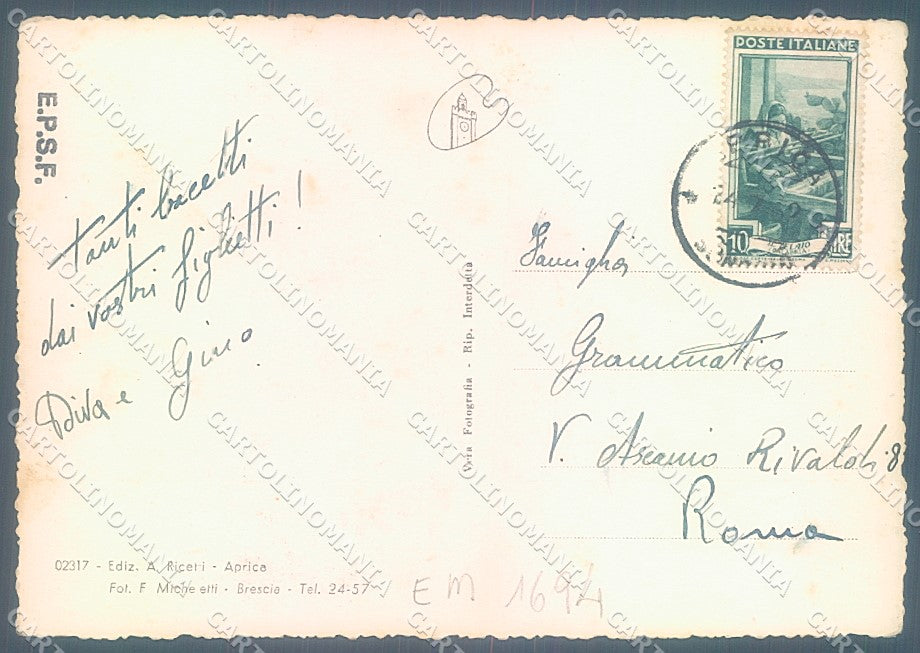 E.P.S.F.
Tanti bacetti
dai vostri figlietti!
Diva e Gino
02317 - Ediz. A. Ricetti - Aprica
Fot. F. Micheletti - Brescia - Tel. 24-57
Vera Fotografia - Rip. Interdetta
POSTE ITALIANE
10
LIRE
Famiglia
Grammatico
V. Ascanio Rivaldi 8
Roma
EM 1694
CARTOLINOMANIA